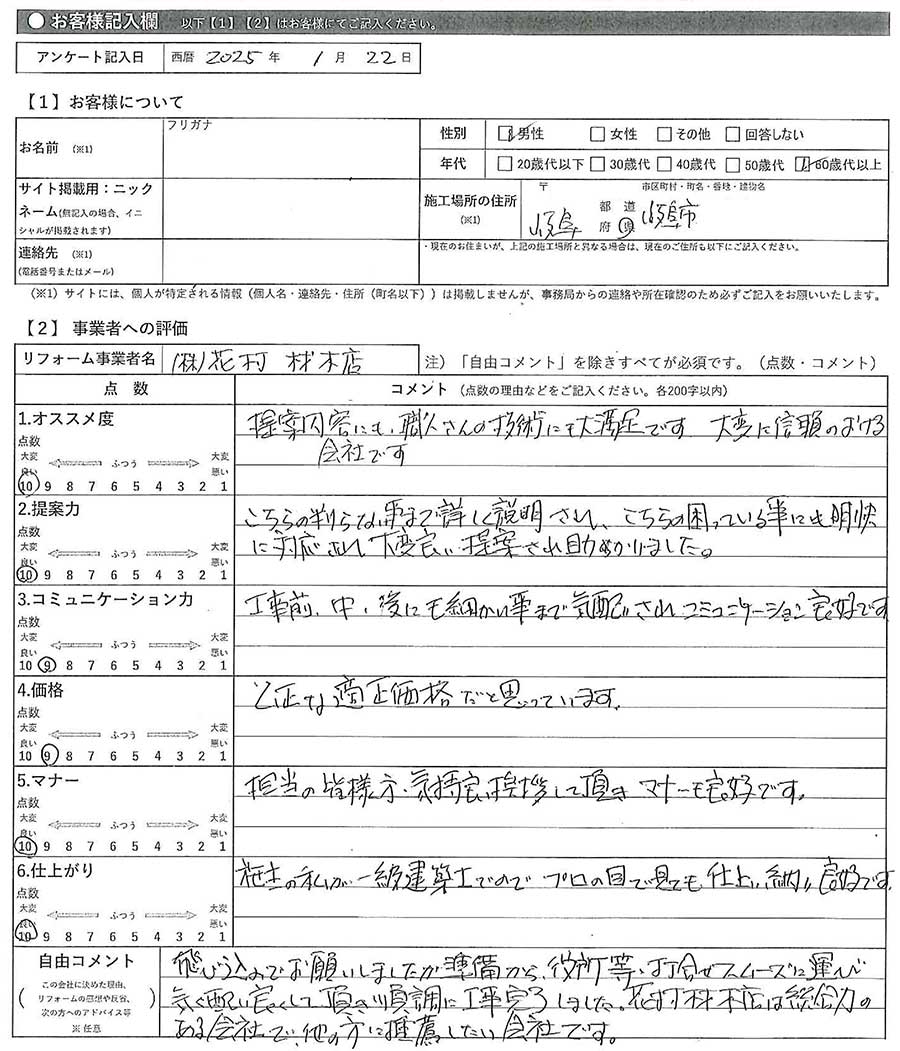 ● お客様記入欄 以下【1】【2】はお客様にてご記入ください。
アンケート記入日 西暦 2025 年 1 月 22 日
【1】お客様について
お名前 (※1) フリガナ
性別 男性 女性 その他 回答しない
年代 20歳代以下 30歳代 40歳代 50歳代 60歳代以上
サイト掲載用：ニックネーム(無記入の場合、イニシャルが掲載されます)
施工場所の住所 (※1) 〒 市区町村・町名・番地・建物名
岐阜 都 道 府 県 岐阜市
連絡先 (※1)
(電話番号またはメール)
・現在のお住まいが、上記の施工場所と異なる場合は、現在のご住所も以下にご記入ください。
（※1）サイトには、個人が特定される情報（個人名・連絡先・住所（町名以下））は掲載しませんが、事務局からの連絡や所在確認のため必ずご記入をお願いいたします。
【2】事業者への評価
リフォーム事業者名 (株)花村 材木店 注）「自由コメント」を除きすべてが必須です。（点数・コメント）
点 数 コメント（点数の理由などをご記入ください。各200字以内）
1.オススメ度
点数
大変良い ふつう 大変悪い
10 9 8 7 6 5 4 3 2 1
提案内容にも、職人さんの技術にも大満足です 大変に信頼のおける
会社です
2.提案力
点数
大変良い ふつう 大変悪い
10 9 8 7 6 5 4 3 2 1
こちらの判らない事まで詳しく説明され、こちらの困っている事にも明快
に対応され大変良い提案され助かりました。
3.コミュニケーション力
点数
大変良い ふつう 大変悪い
10 9 8 7 6 5 4 3 2 1
工事前、中、後にも細かい事まで気配りされコミュニケーション良好です
4.価格
点数
大変良い ふつう 大変悪い
10 9 8 7 6 5 4 3 2 1
公正な適正価格だと思っています。
5.マナー
点数
大変良い ふつう 大変悪い
10 9 8 7 6 5 4 3 2 1
担当の皆様方、気持良い挨拶して頂きマナーも良好です。
6.仕上がり
点数
大変良い ふつう 大変悪い
10 9 8 7 6 5 4 3 2 1
施主の私が一級建築士でので プロの目で見ても仕上い納り良好です
自由コメント
（この会社に決めた理由、リフォームの感想や反省、次の方へのアドバイス等）
※ 任意
飛びう込みでお願いしましたが準備から、役所等、打合せスムーズに運び
気く配い良くして頂きい順調に工事完了しました。花村材木店は総合力の
ある会社で、他の方に推薦したい会社です。